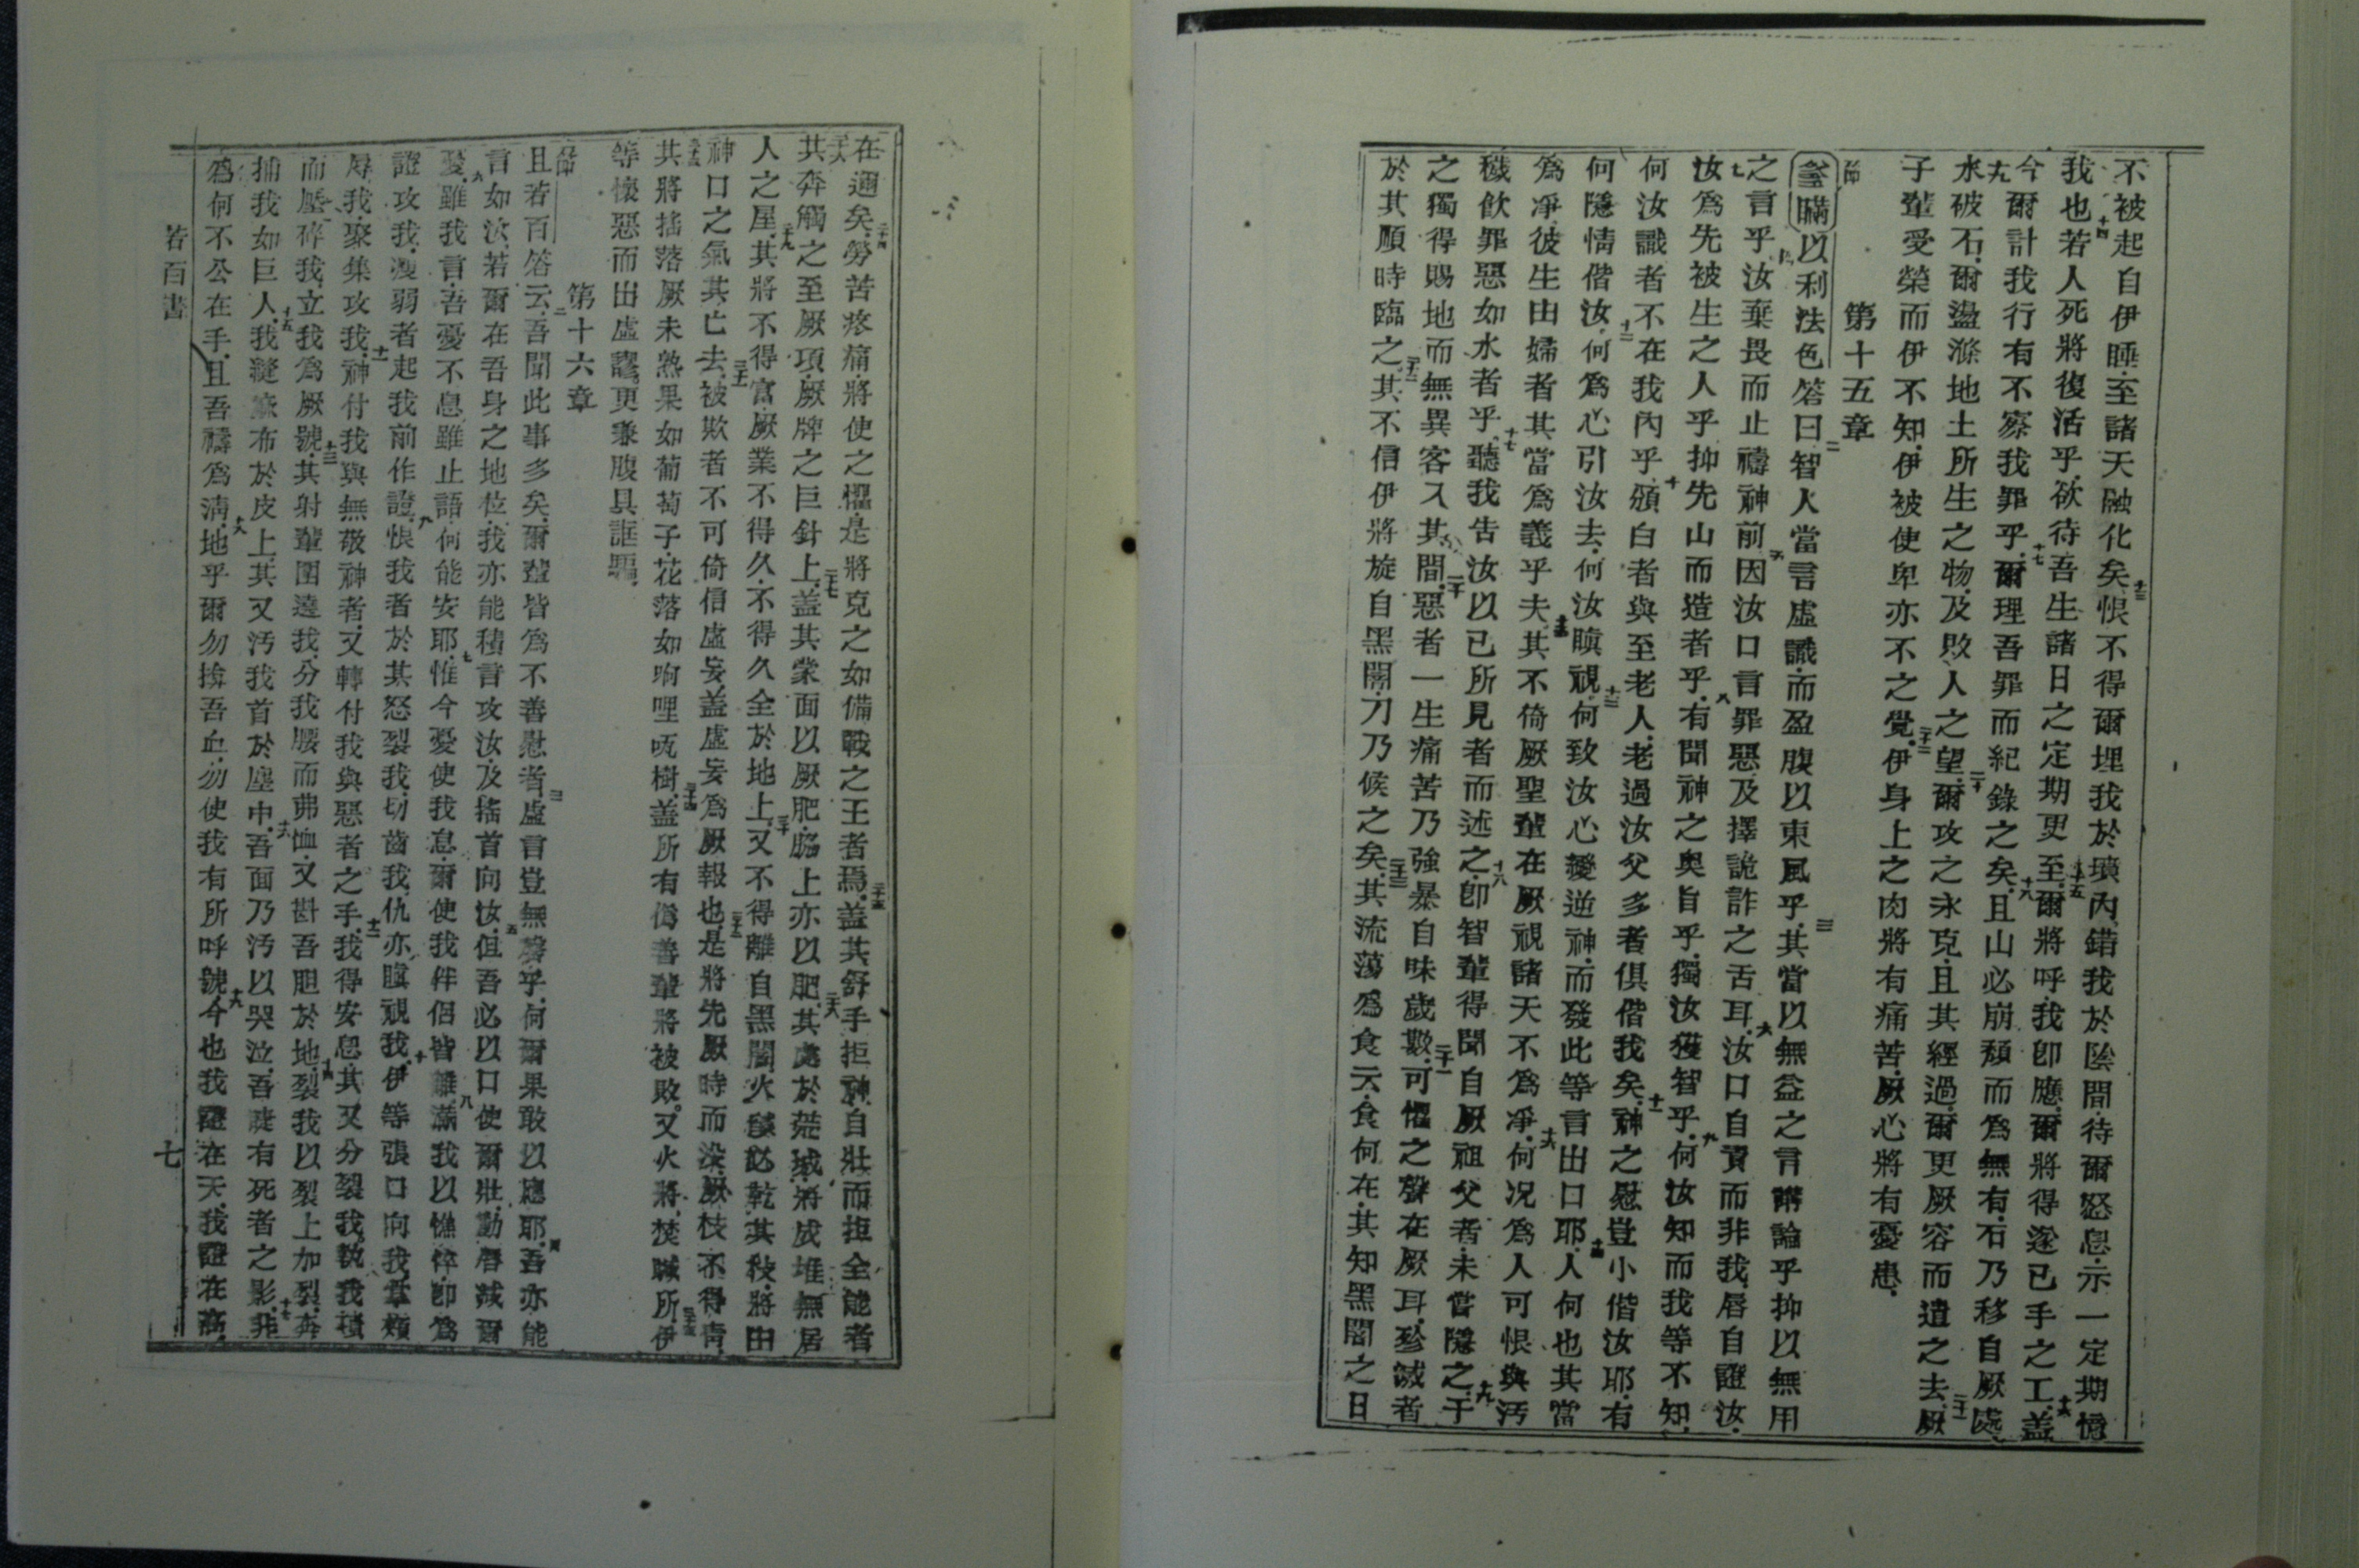 不被起自伊睡至諸天融化矣十三恨不得爾埋我於壙內錯我於陰間待爾怒息示一定期憶
我也十四若人死將復活乎欲待吾生諸日之定期更至十五爾將呼我卽應爾將得遂已手之工十六盖
今爾計我行有不察我罪乎十七爾理吾罪而紀錄之矣十八且山必崩頹而爲無有石乃移自厥處
十九水破石爾盪滌地土所生之物及敗人之望二十爾攻之永克且其經過爾更厥容而遣之去二十一厥
子輩受榮而伊不知伊被使卑亦不之覺二十二伊身上之肉將有痛苦厥心將有憂患
第十五章
一節
以利法色答曰二智人當言虛識而盈腹以東風乎三其當以無益之言講論乎抑以無用
之言乎四汝棄畏而止禱神前五因汝口言罪惡及擇詭詐之舌耳六汝口自責而非我唇自證汝
七汝爲先被生之人乎抑先山而造者乎八有聞神之奥旨乎獨汝獲智乎九何汝知而我等不知
何汝識者不在我內乎十頒白者與至老人老過汝父多者俱偕我矣十一神之慰豈小偕汝耶有
何隱情偕汝十二何爲心引汝去何汝瞋視十三何致汝心變逆神而發此等言出口耶十四人何也其當
爲凈彼生由婦者其當爲義乎十五夫其不倚厥聖輩在厥視諸天不爲凈十六何况爲人可恨與汚
穢飲罪惡如水者乎十七聽我告汝以已所見者而述之十八卽智輩得聞自厥祖父者未嘗隱之十九于
之獨得賜地而無異客入其間二十惡者一生痛苦乃強暴自味歲數二十一可懼之聲在厥耳殄滅者
於其順時臨之二十二其不信伊將旋自黑闇刀乃候之矣二十三其流蕩爲食云食何在其知黑闇之日
在邇矣二十四勞苦疼痛將使之懼是將克之如備戰之王者焉二十五盖其舒手拒神自壯而拒全能者
二十六其奔觸之至厥項厥牌之巨針上二十七盖其蒙面以厥肥脇上亦以肥二十八其處於荒城將成堆無居
人之屋二十九其將不得富厥業不得久不得久全於地上三十又不得離自黑闇火燄必乾其枝將由
神口之氣其亡去三十一被欺者不可倚信虛妄盖虛妄爲厥報也三十二是將先厥時而沒厥枝不得青
三十三其將搖落厥未熟果如葡萄子花落如㖃哩㕶樹三十四盖所有僞善輩將被敗又火將焚賍所三十五伊
等懷惡而出虛謬更兼腹具誆騙
第十六章
一節
且若百答云二吾聞此事多矣爾輩皆爲不善慰者三虛言豈無聲乎何爾果敢以應耶四吾亦能
言如汝若爾在吾身之地位我亦能積言攻汝及搖首向汝五但吾必以口使爾壯動唇減爾
憂六雖我言吾憂不息雖止語何能安耶七惟今憂使我息爾使我伴侶皆離八滿我以憔悴卽爲
證攻我瘦弱者起我前作證九恨我者於其怒裂我切齒我仇亦瞋視我十伊等張口向我掌頰
辱我聚集攻我十一神付我與無敬神者又轉付我與惡者之手十二我得安息其又分裂我執我項
而壓碎我立我爲厥號十三其射輩圍遶我分我腰而弗恤又斟吾胆於地十四裂我以裂上加裂奔
捕我如巨人十五我縫蔴布於皮上其又汚我首於塵中十六吾面乃汚以哭泣吾睫有死者之影十七非
爲何不公在手且吾禱爲淸十八地乎爾勿揜吾血勿使我有所呼號十九今也我證在天我證在高
若百書
七